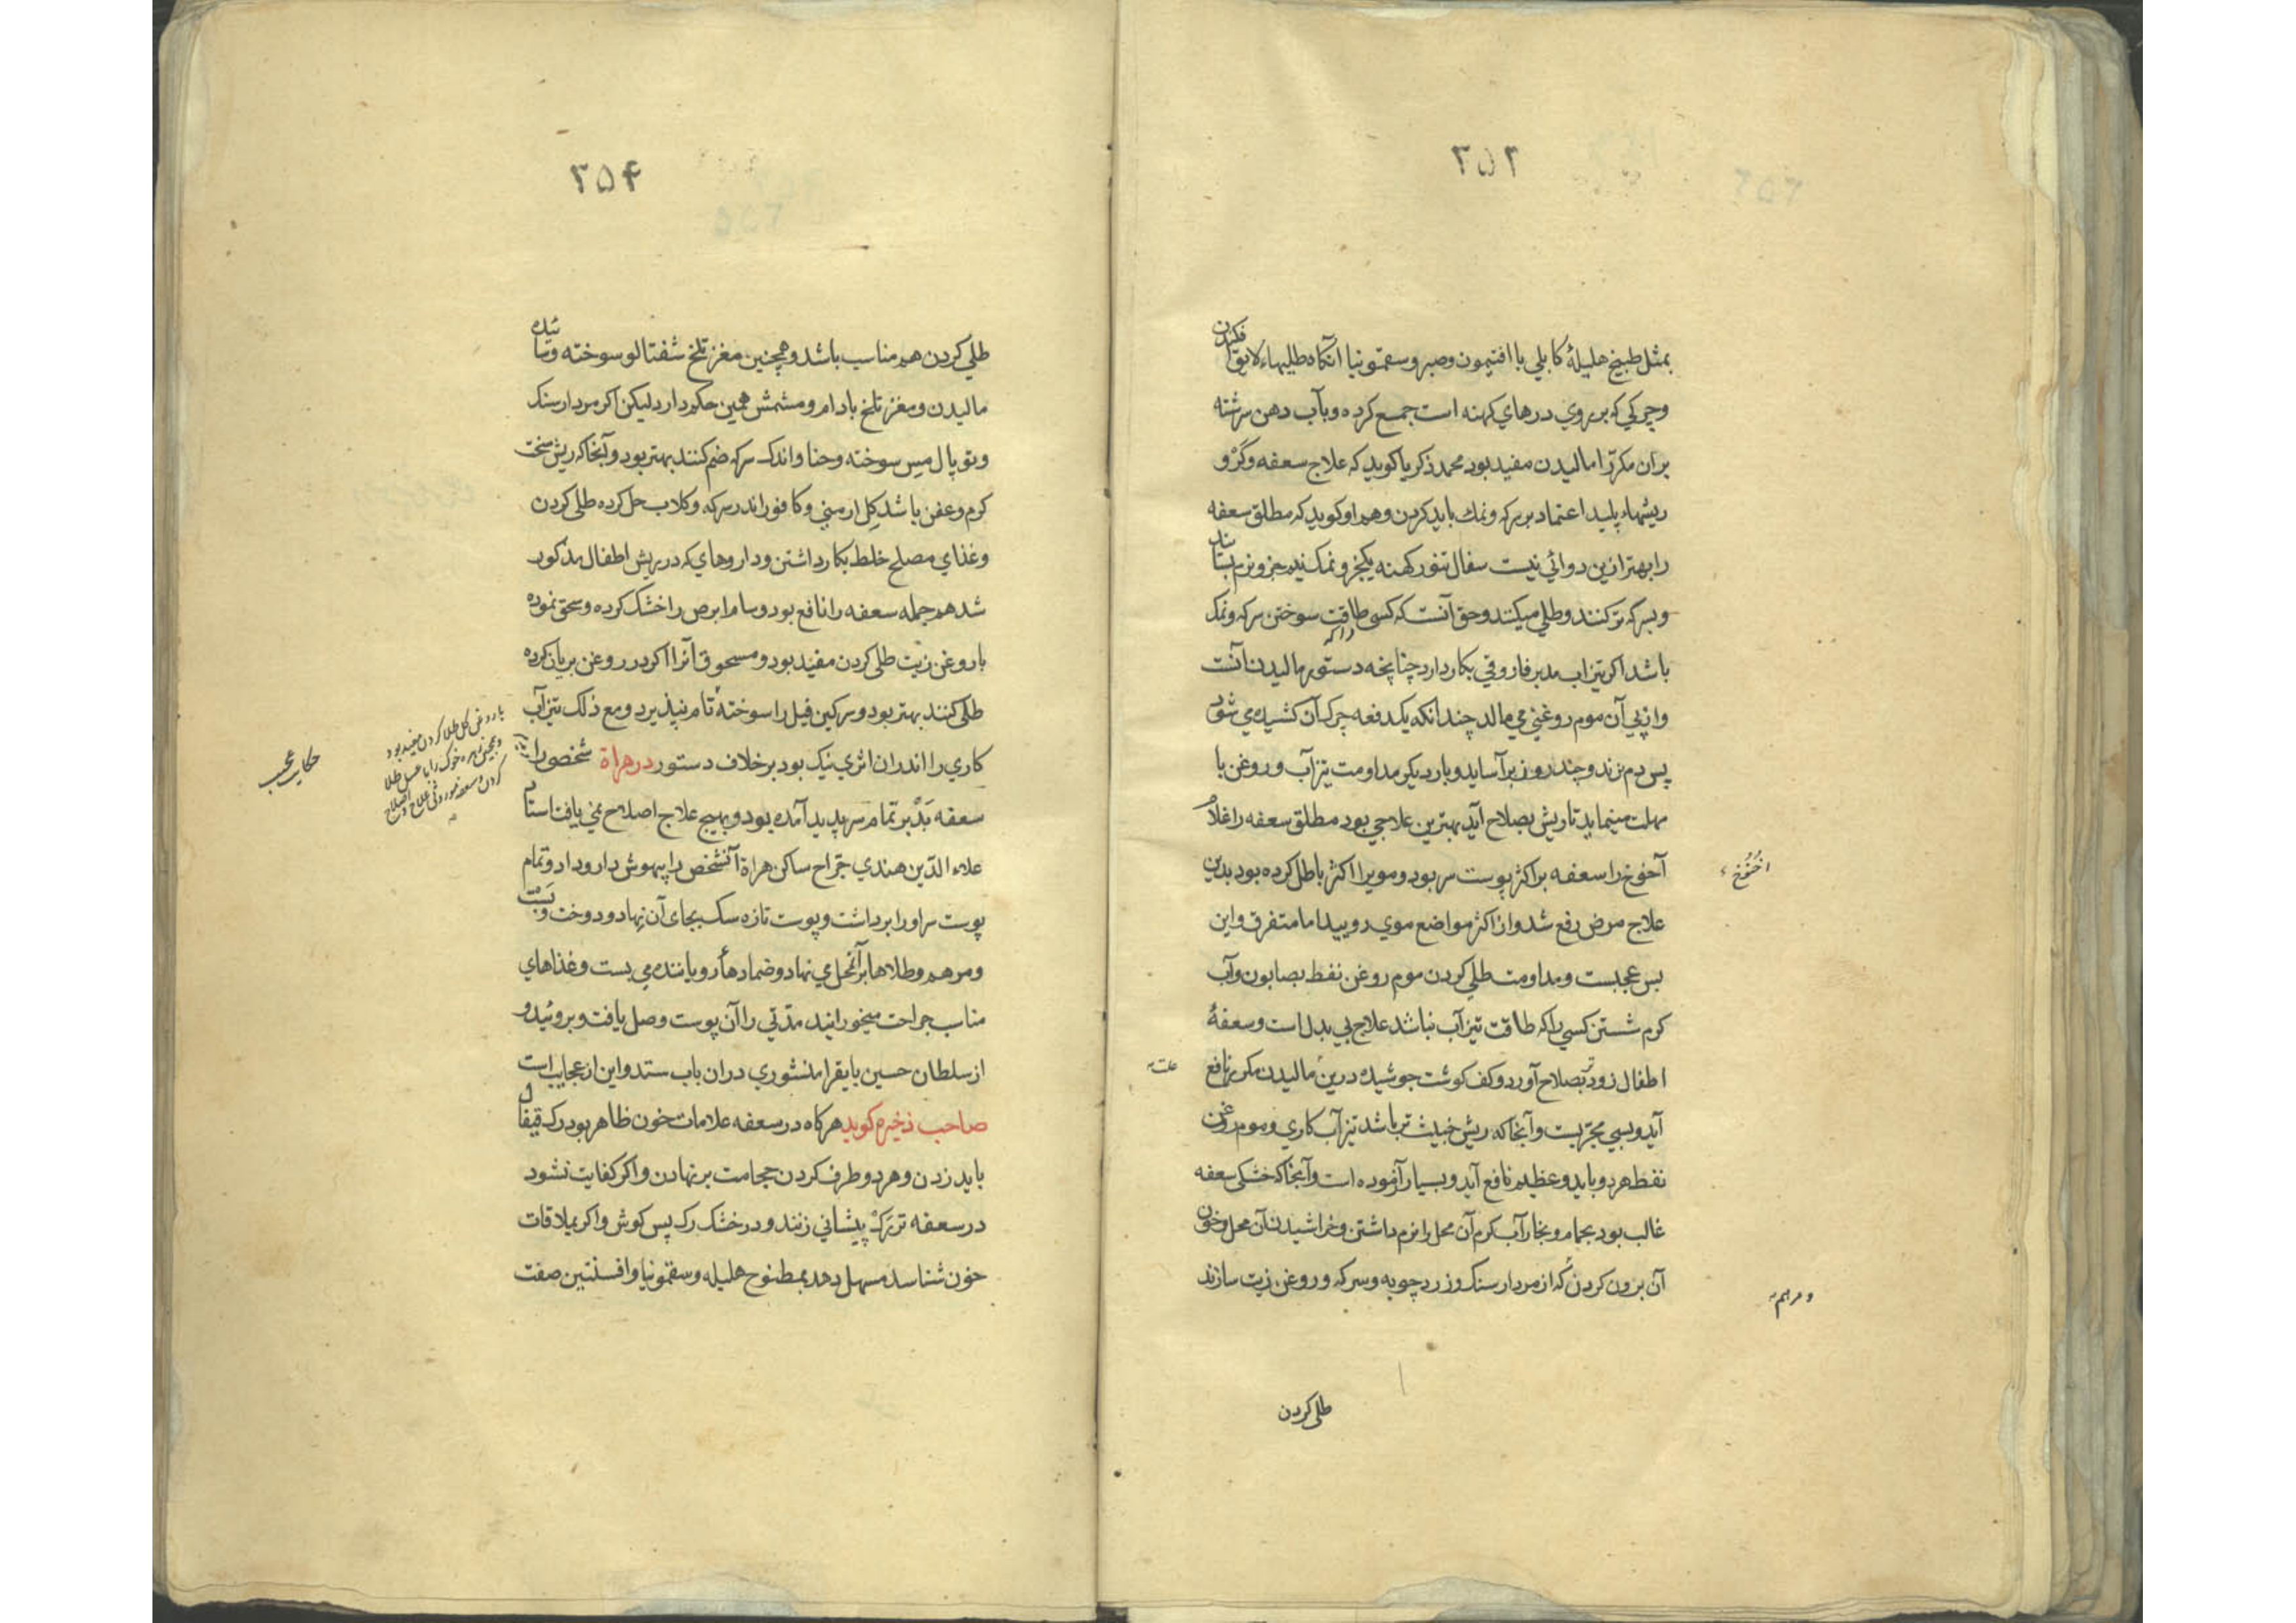 ۳۵۳
بمثل طبیخ هلیلهٔ کابلی با افتیمون وصبر وسقمونیا آنکاه طلیهاء لایق فکندن
وچرکی که بر روی درهای کهنه است جمع کرده وبآب دهن سرشته
بران مکررّا مالیدن مفید بود محمد ذکریا کوید که علاج سعفه وکَرْ و
ریشهاء پلید اعتماد بر سرکه ونمك باید کردن وهم او کوید که مطلق سعفه
را بهتر ازین دوائی نیست سفال تنور کهنه یکجزو نمک نیم جزو نرم بسایند
وبسرکه تر کنند وطلی میکنند وحق آنست که کسی را که طاقت سوختن سرکه ونمک
باشد اکر تیزاب مدبر فاروقی بکار دارد چنانچه دستور مالیدن آنست
واز پی آن موم روغنی می مالد چندانکه یکدفعه چرک آن کشیده می شود
پس دم زند وچند روز بر آساید وبار دیکر مداومت تیزآب وروغن با
مهلت مینماید تا ریش بصلاح آید بهترین علاجی بود مطلق سعفه را غلام
آخوخ را سعفه بر اکثر پوست سر بود ومویرا اکثر باطل کرده بود بدین
علاج مرض رفع شد واز اکثر مواضع موی رویید اما متفرق واین
بس عجبست ومداومت طلی کردن موم روغن نفط بصابون وآب
کرم شستن کسی را که طاقت تیزآب نباشد علاج بی بدل است وسعفهٔ
اطفال زودتر بصلاح آورد وکف کوشت جوشیده درین مالیدن مکرر نافع
علت
آید وبسی مجرّبست وآنجا که ریش خبیث تر باشد تیزآب کاری وموم روغن
نفط هر دو باید وعظیم نافع آید وبسیار آزموده است وآنجا که خشکی سعفه
غالب بود بحمام وبخار آب کرم آن محل را نرم داشتن وخراشیدن آن محل وخون
آن برون کردن که از مردار سنک وزردچوبه وسرکه وروغن زیت سازند
ومرهم
طلی کردن
۳۵۴
طلی کردن هم مناسب باشد وهمچنین مغز تلخ شفتالو سوخته وسائیده
مالیدن ومغز تلخ بادام ومشمش همین حکم دارد لیکن اکر مردار سنک
وتوپال مس سوخته وحنا واندک سرکه ضم کنند بهتر بود وآنجا که ریش سخت
کرم وعفن باشد کِل ارمنی وکافور اندر سرکه وکلاب حل کرده طلی کردن
وغذای مصلح خلط بکار داشتن وداروهای که در ریش اطفال مذکور
شد هم جمله سعفه را نافع بود وسام ابرص را خشک کرده وسحق نموده
با روغن زیت طلی کردن مفید بود ومسحوق آنرا اکر در روغن بریان کرده
طلی کنند بهتر بود وسرکین فیل را سوخته تام نپذیرد ومع ذلک تیزآب
با روغن کل طلا کردن مفید بود
وهمچنین زهره خوک را با عسل طلا
کردن وسعفه موروثی علاج و اصلاح
کاری را اندران اثری نیک بود بر خلاف دستور در هراة شخصی را
حکایت عجیب
سعفه بَدْ بر تمام سر پدید آمده بود وبهیچ علاج اصلاح نمی یافت استاد
علاء الدّین هندی جرّاح ساکن هراة آنشخص را بیهوش دارو داد وتمام
پوست سر او را برداشت وپوست تازه سک بجای آن نهاد ودوخت وبَبَست
ومرهم وطلاها بر آنمحل می نهاد وضمادهاء رویاننده می بست وغذاهای
مناسب جراحت میخورانید مدّتی را آن پوست وصل یافت وبروئید و
از سلطان حسین بایقرا منشوری دران باب ستد واین از عجایب است
صاحب ذخیره کوید هرکاه در سعفه علامات خون ظاهر بود رک قیفال
باید زدن وهر دو طرف کردن حجامت بر نهادن واکر کفایت نشود
در سعفه تر رَکْ پیشانی زنند ودر خشک رک پس کوش واکر بملاقات
خون شناسد مسهل دهد بمطبوخ هلیله وسقمونیا وافسنتین صفت